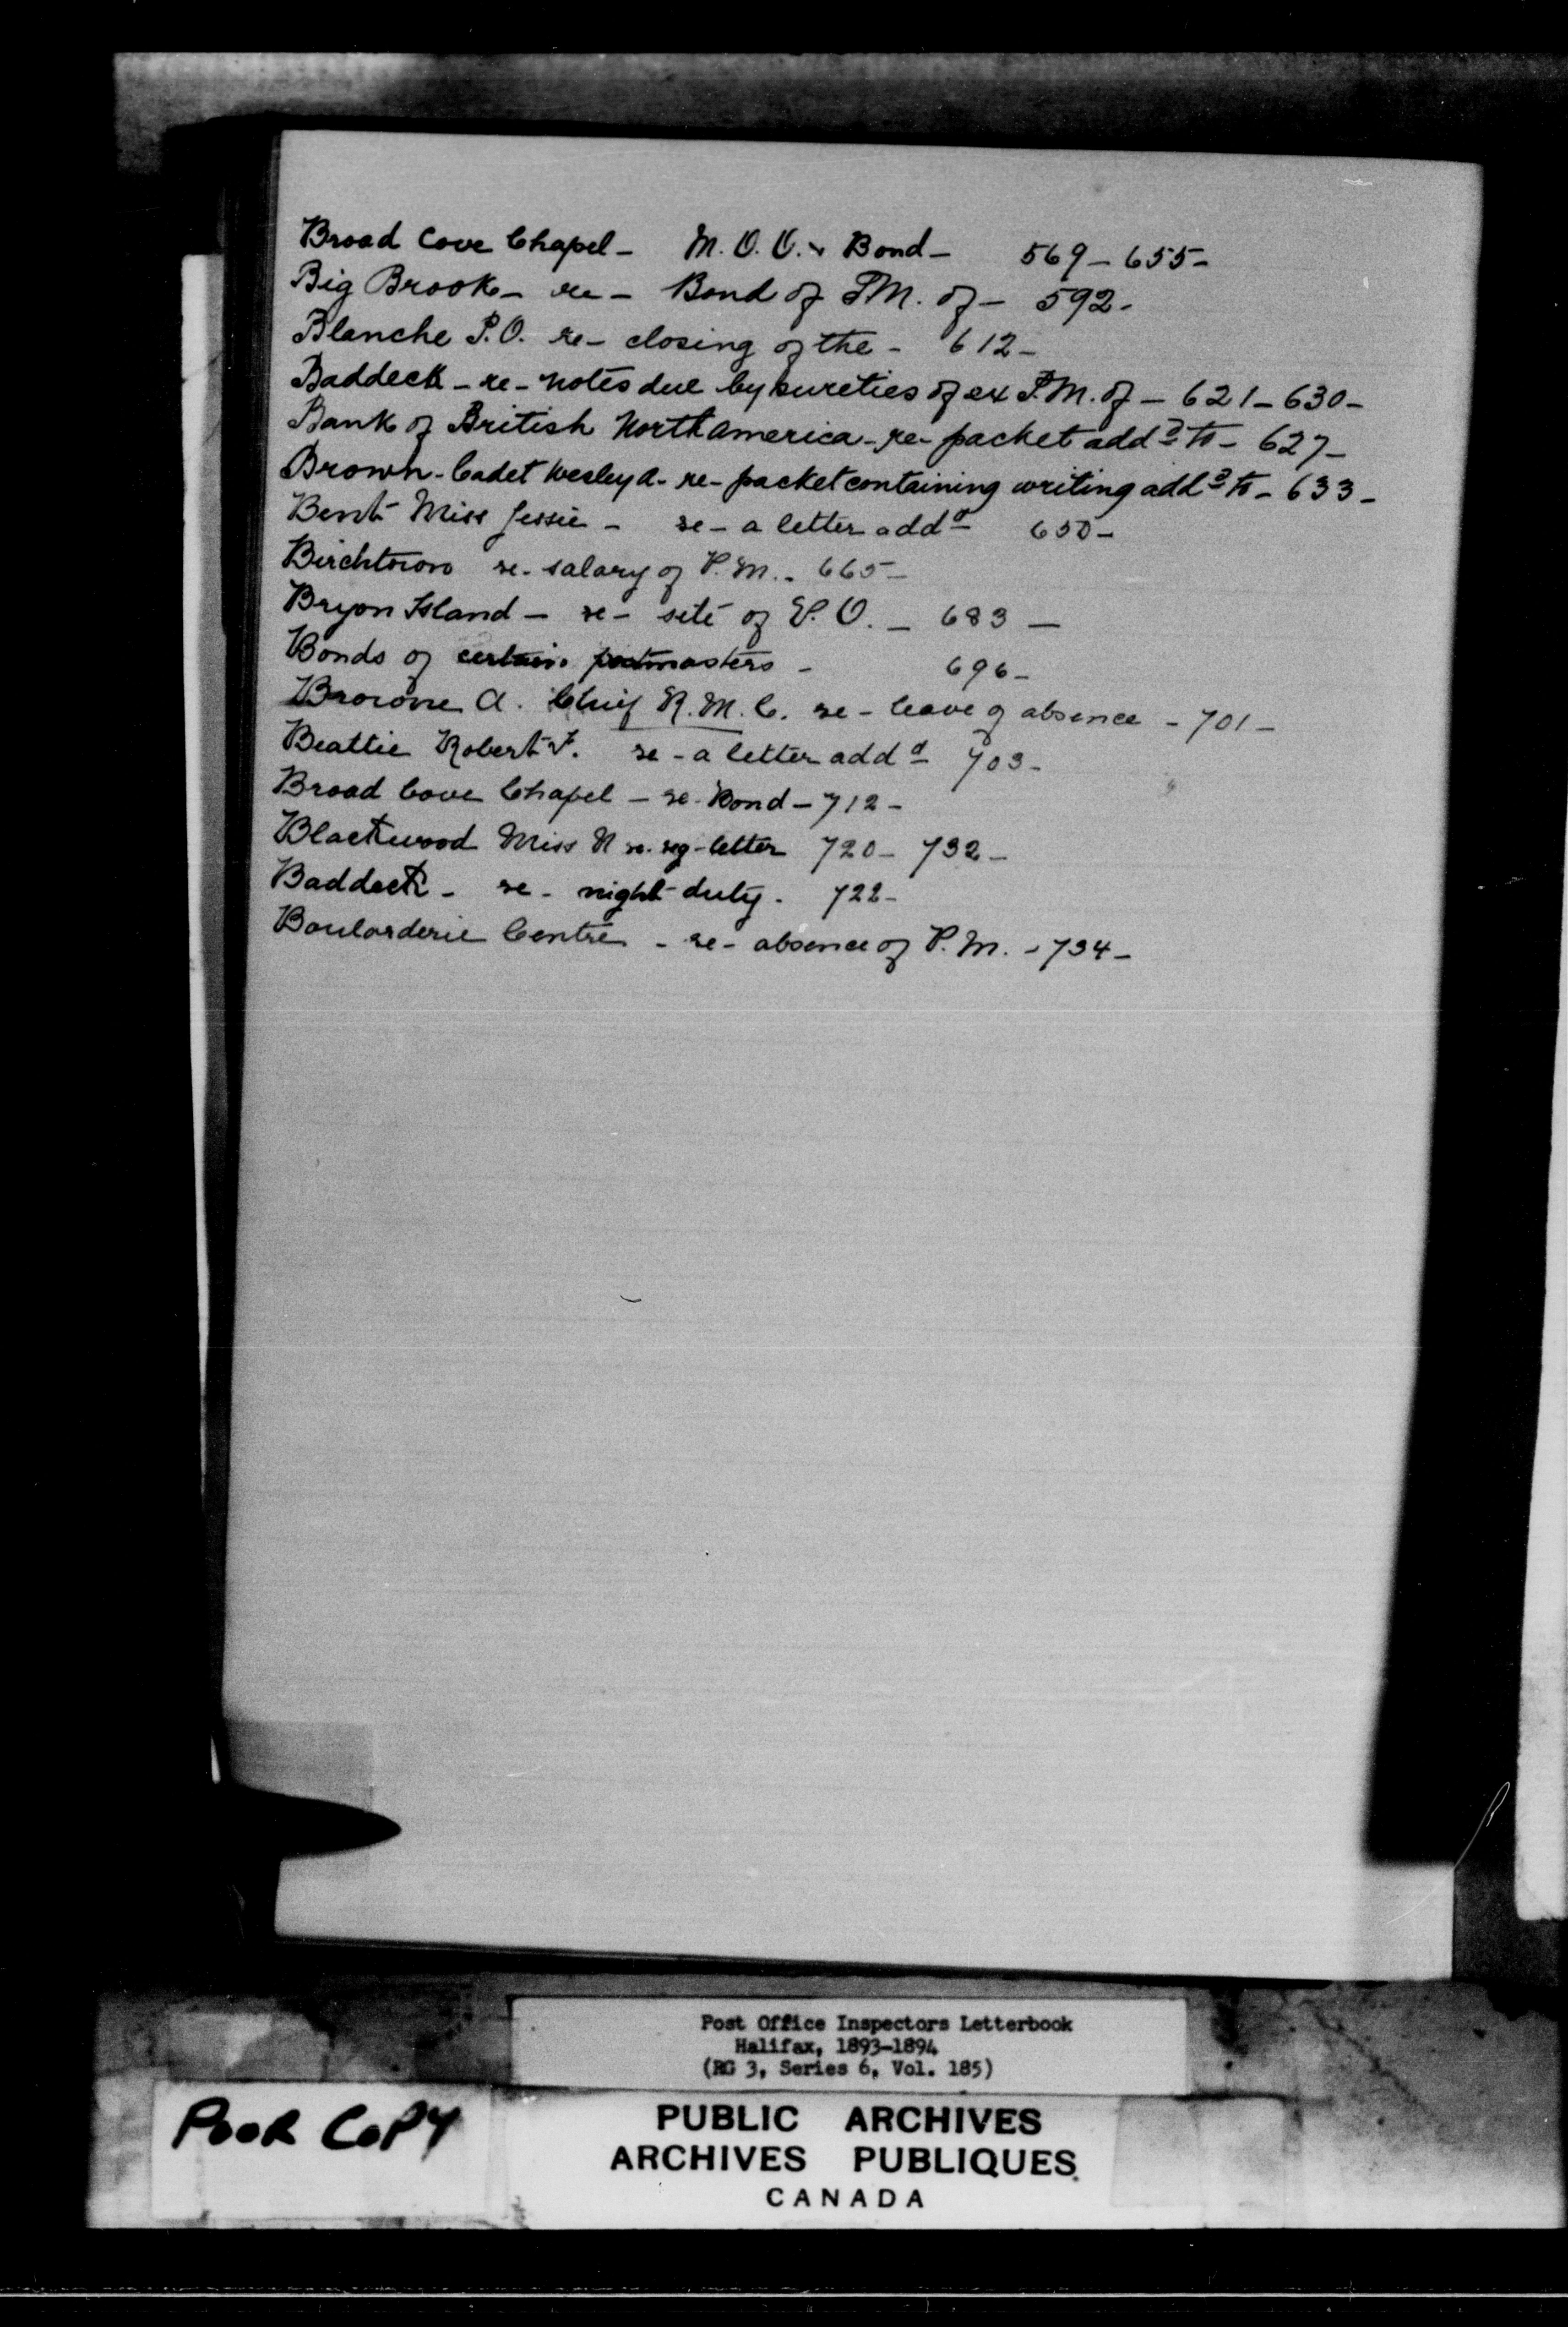 Broad Cove Chapel - M.O.O. & Bond - 569 - 655 -
Big Brook - re - Bond of P.M. of - 592 -
Blanche P.O. re - closing of the - 612 -
Baddeck - re - notes due by sureties of ex P.M. of - 621 - 630 -
Bank of British North America - re - packet addd to - 627 -
Brown - Cadet Wesley A - re - packet containing writing addd to - 633 -
Bent Miss Jessie - re - a letter addd 650 -
Birchtown re - salary of P.M. - 665 -
Bryon Island - re - site of P.O. - 683 -
Bonds of certain postmasters - 696 -
Browne A. Chief R.M.C. re - leave of absence - 701 -
Beattie Robert F. re - a letter addd 703 -
Broad Cove Chapel - re - Bond - 712 -
Blackwood Miss N re - reg - letter 720 - 732 -
Baddeck - re - night duty - 722 -
Boularderie Centre - re - absence of P.M. - 734 -
Post Office Inspectors Letterbook
Halifax, 1893-1894
(RG 3, Series 6, Vol. 185)
POOR COPY
PUBLIC ARCHIVES
ARCHIVES PUBLIQUES
CANADA